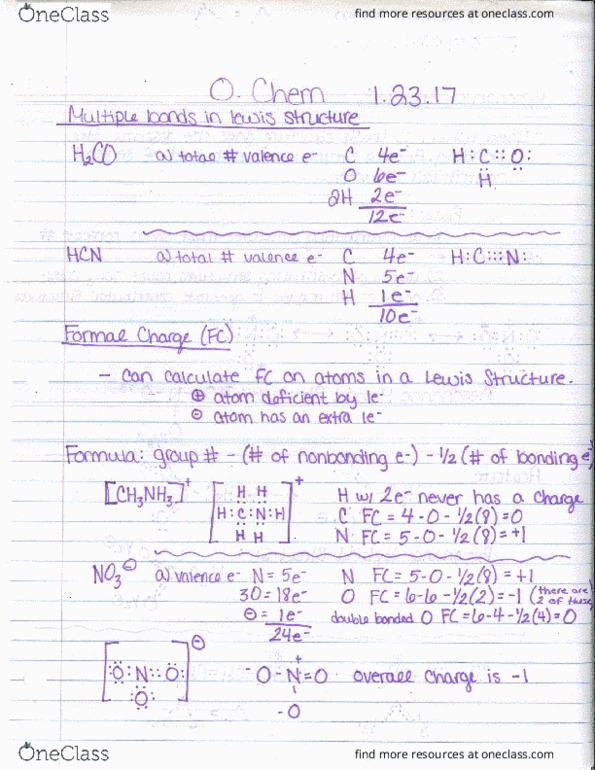 OneClass
find more resources at oneclass.com
O. Chem 1.23.17
Multiple bonds in lewis structure
H₂CO a) total # valence e⁻ C 4e⁻ H:C::O:
O 6e⁻ H
2H 2e⁻
12e⁻
HCN a) total # valence e⁻ C 4e⁻ H:C:::N:
N 5e⁻
H 1e⁻
10e⁻
Formal Charge (FC)
- can calculate FC on atoms in a Lewis Structure.
⊕ atom deficient by 1e⁻
⊖ atom has an extra 1e⁻
Formula: group # - (# of nonbonding e⁻) - ½ (# of bonding e⁻)
[CH₃NH₃]⁺ H H + H w/ 2e⁻ never has a charge
H:C:N:H C FC = 4-0-½(8)=0
H H N FC = 5-0-½(8)=+1
NO₃⊖ a) valence e⁻ N = 5e⁻ N FC = 5-0-½(8)=+1
3O = 18e⁻ O FC = 6-6-½(2)=-1 (there are 2 of these)
⊖ = 1e⁻ double bonded O FC = 6-4-½(4)=0
24e⁻
⊖
:O:N::O: -O-N=O overall charge is -1
:O: + -O
OneClass
find more resources at oneclass.com